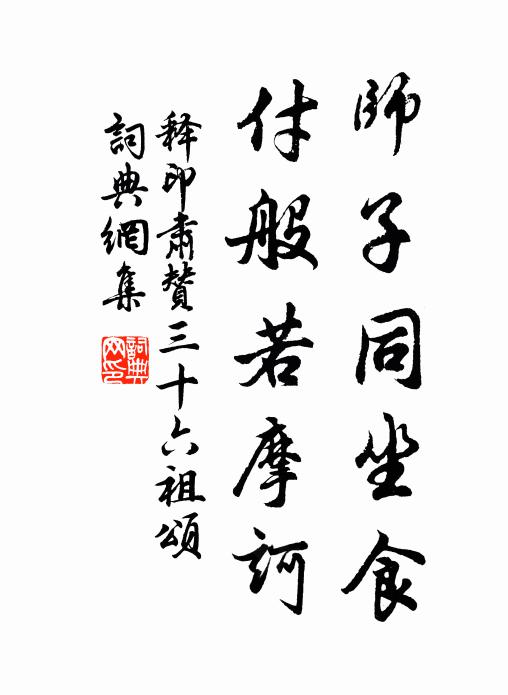 師子同坐食
付般若摩訶
释印肅贊三十六祖頌
詞典網集
詞典网印